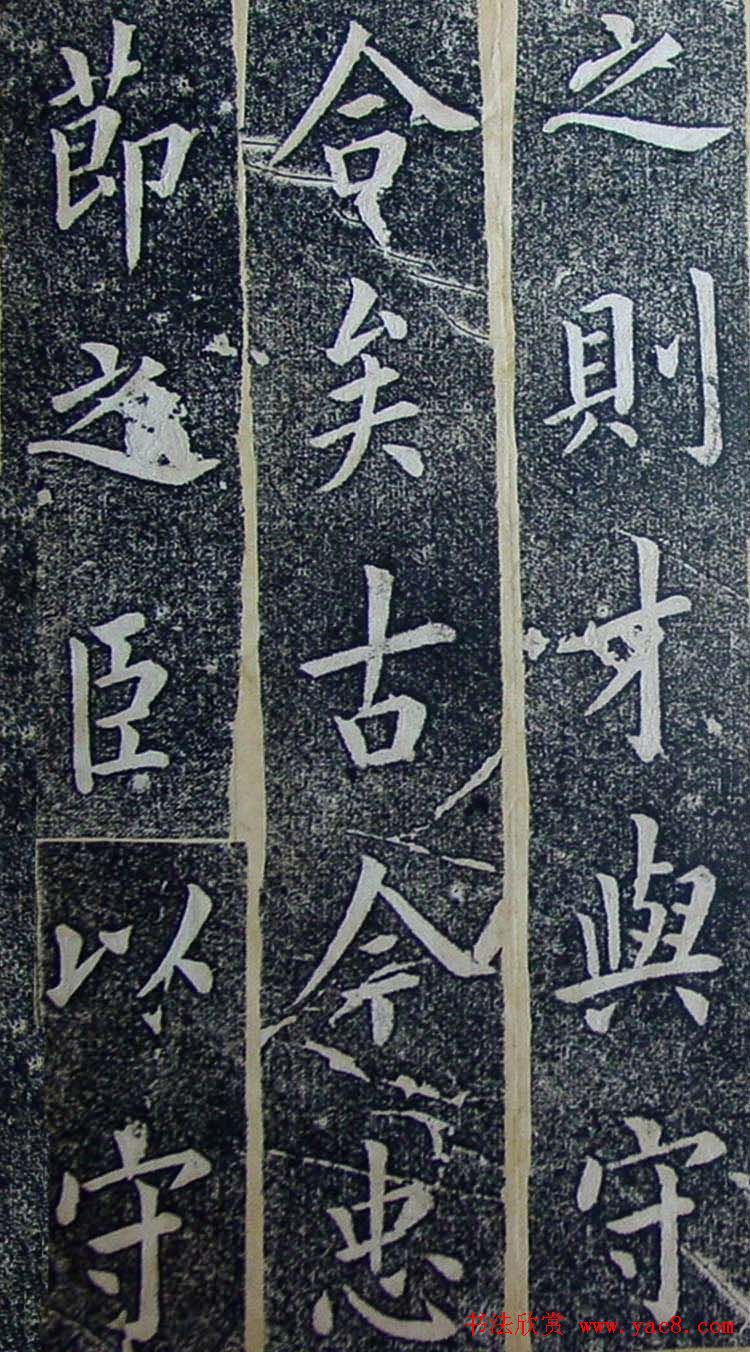 之則才與守
合矣古今忠
莭之臣以守
书法欣赏 www.yac8.com